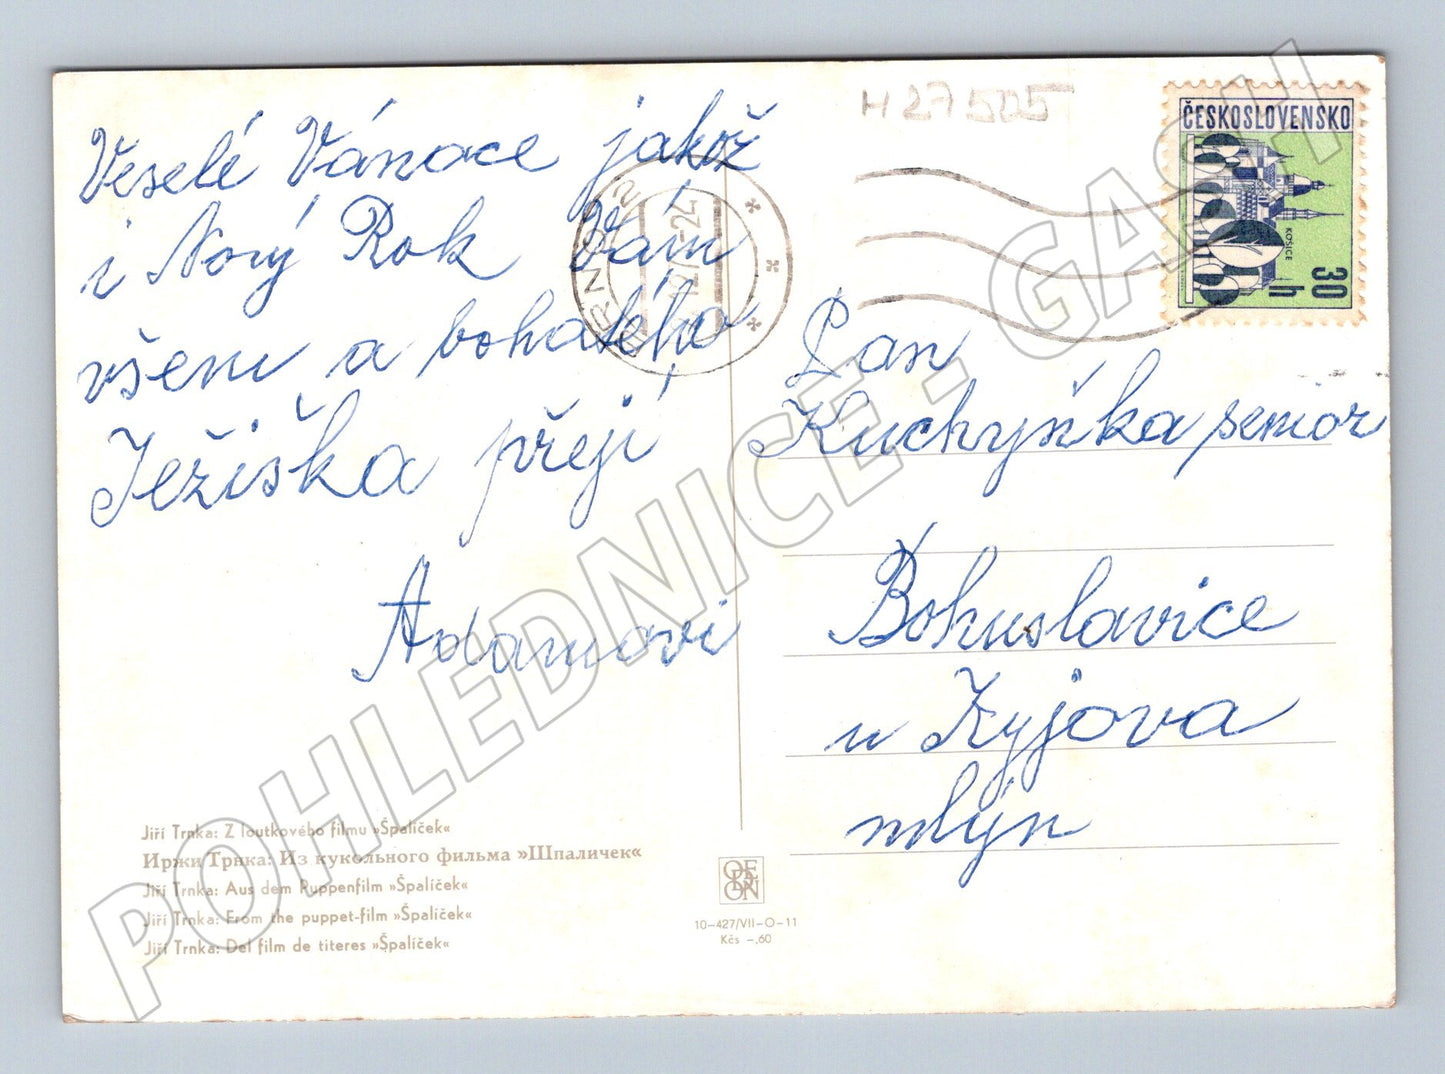 Veselé Vánoce jakož
i Nový Rok Vám
všem a bohatého
Ježiška přejí
Adamovi
H27505
ČESKOSLOVENSKO
KOŠICE
30 h
BRNO 2
Pan
Kuchyňka senior
Bohuslavice
u Kyjova
mlýn
Jiří Trnka: Z loutkového filmu »Špalíček«
Иржи Трнка: Из кукольного фильма »Шпаличек«
Jiří Trnka: Aus dem Puppenfilm »Špalíček«
Jiří Trnka: From the puppet-film »Špalíček«
Jiří Trnka: Del film de titeres »Špalíček«
ORBIS
10-427/VII-O-11
Kčs -,60
POHLEDNICE - GASH